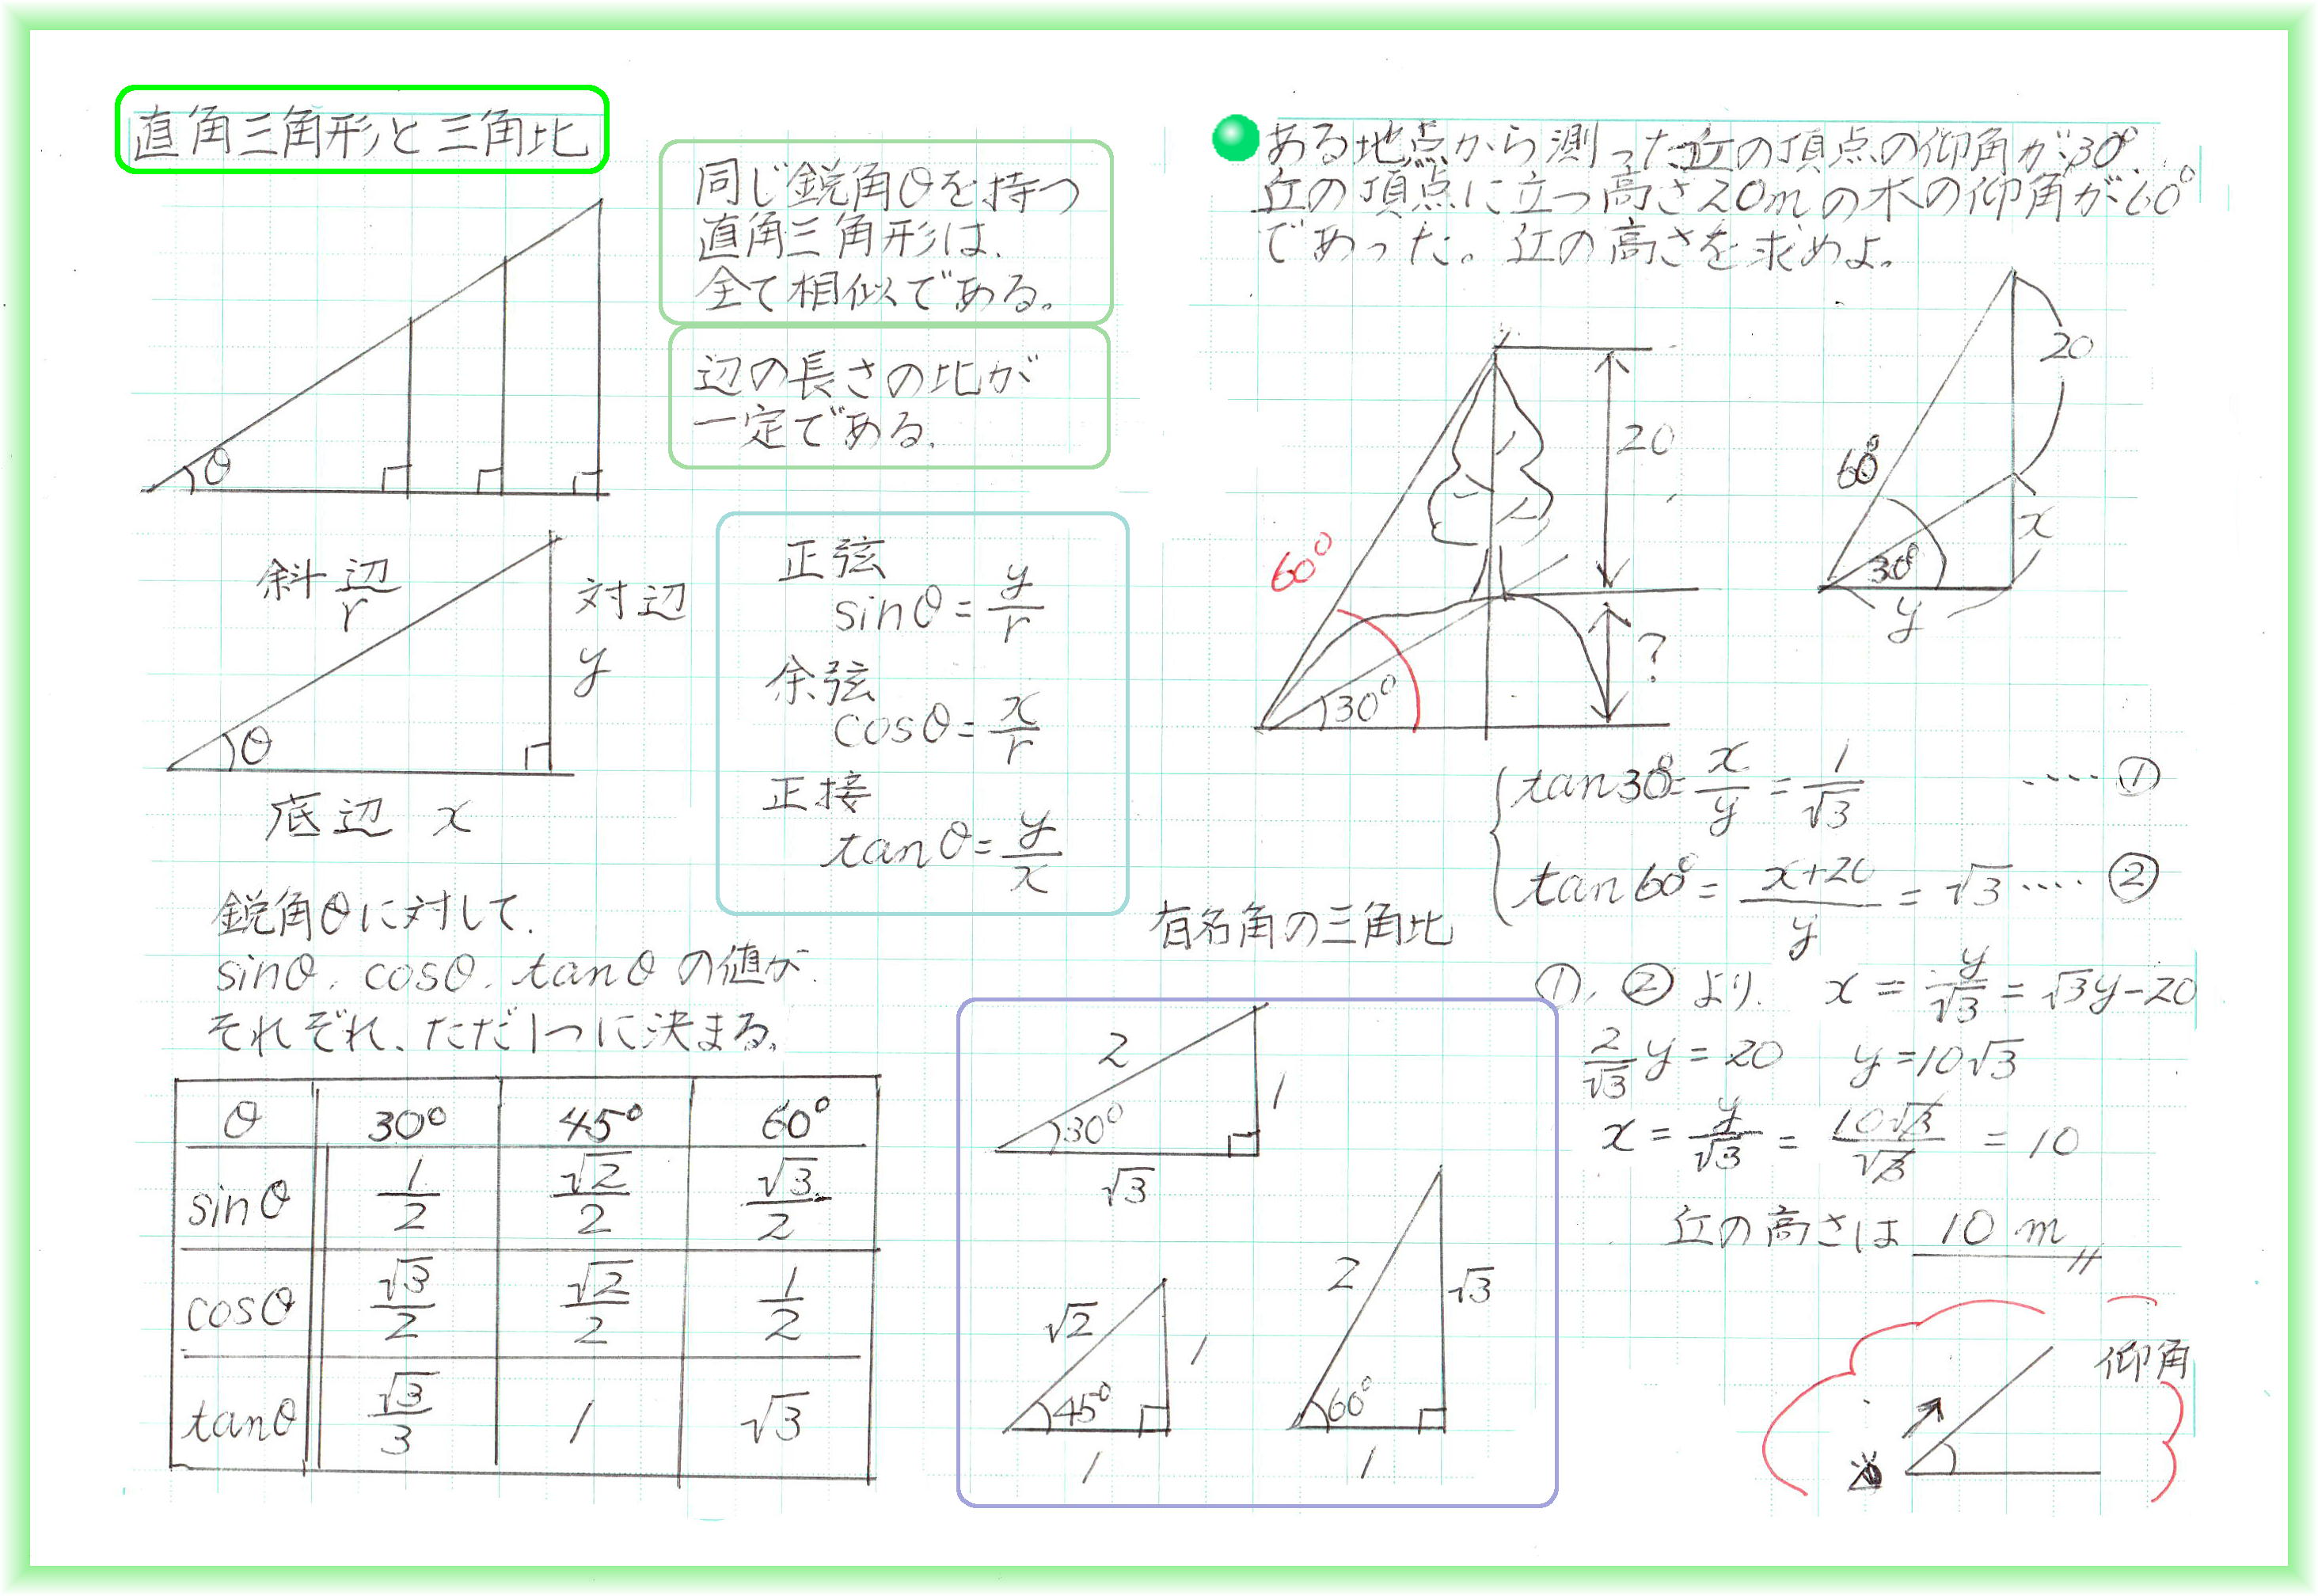 直角三角形と三角比
同じ鋭角θを持つ
直角三角形は、
全て相似である。
辺の長さの比が
一定である。
θ
斜辺
r
対辺
y
θ
底辺 x
正弦
sinθ = y/r
余弦
cosθ = x/r
正接
tanθ = y/x
鋭角θに対して、
sinθ、cosθ、tanθの値が、
それぞれ、ただ1つに決まる。
θ 30° 45° 60°
sinθ 1/2 √2/2 √3/2
cosθ √3/2 √2/2 1/2
tanθ √3/3 1 √3
有名角の三角比
2
1
30°
√3
√2
1
45°
1
2
√3
60°
1
ある地点から測った丘の頂点の仰角が30°、
丘の頂点に立つ高さ20mの木の仰角が60°
であった。丘の高さを求めよ。
20
60°
?
30°
20
60°
x
30°
y
tan30° = x/y = 1/√3 ‥‥ ①
tan60° = x+20/y = √3 ‥‥ ②
①、②より、 x = y/√3 = √3y-20
2/√3 y = 20 y = 10√3
x = y/√3 = 10√3/√3 = 10
丘の高さは 10 m
仰角